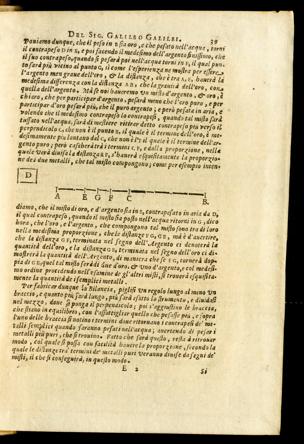 DEL SIG. GALILEO GALILEI. 39
Poniamo dunque, che il peso in B sia oro, e che pesato nell'acque, torni
il contrapeso D in E, e poi facendo il medesimo dell'argento finissimo, che
il suo contrapeso, quando si peserà poi nell'acqua torni in F, il qual pun-
to sarà più vicino al punto C, si come l'esperienza ne mostra per essere
l'argento men grave dell'oro, & la distanza, che è tra A, E, haverà la
medesima differenza dalla distanza AE, che la gravità dell'oro, con
quella dell'argento. Ma se noi haveremo un misto d'argento, & oro è
chiaro, che per participare d'argento, peserà meno che l'oro puro, e per
participar d'oro peserà più, che il puro argento: però pesato in aria, e
volendo che il medesimo contrapeso lo contrapesi, quando tal misto sarà
tuffato nell'acqua, sarà di mestiere ritirar detto contrapeso più verso il
perpendicolo C, che non è il punto E, il quale è il termine dell'oro, è me-
desimamente più lontano dal C, che non è l'F il quale è il termine dell'ar-
gento puro; però cascherà tra i termini E, F, e dalla proporzione, nella
quale verrà divisa la distanza E F, s'haverà esquisitamente la proporzio-
ne dei due metalli, che tal misto compongono; come per esempio inten-
D
A E G F C B.
diamo, che il misto di oro, e d'argento sia in B, contrapesato in aria da D,
il qual contrapeso, quando il misto sia posto nell'acqua ritorni in G, dico
hora, che l'oro, e l'argento, che compongono tal misto sono tra di loro
nella medesima proporzione, che le distanze FG, GE, ma è d'avertire,
che la distanza GF, terminata nel segno dell'Argento ci denoterà la
quantità dell'oro, e la distanza GE, terminata nel segno dell'oro ci di-
mostrerà la quantità dell'Argento, di maniera che se FG, tornerà dop-
pia di GE, quel tal misto sarà di due d'oro, & uno d'Argento, e col medesi-
mo ordine procedendo nell'esamine de gl'altri misti, si troverà esquisita-
mente la quantità de i semplici metalli.
Per fabricar dunque la Bilancia, piglisi un regolo lungo al meno un
braccio, e quanto più sarà lungo, più sarà esatto lo strumento, e dividasi
nel mezzo, dove si ponga il perpendicolo; poi s'aggiustino le braccia,
che stieno in equilibrio, con l'assottigliar quello che pesasse più, e sopra
l'uno delle braccia si notino i termini dove ritornano i contrapesi de' me-
talli semplici quando saranno pesati nell'acqua; avertendo di pesar i
metalli più puri, che si trovino. Fatto che sarà questo, resta à ritrovar
modo, col quale si possa con facilità havere la proporzione, secondo la
quale le distanze tra i termini de' metalli puri verranno divise da segni de'
misti, il che si conseguirà, in questo modo.
E 2 Si